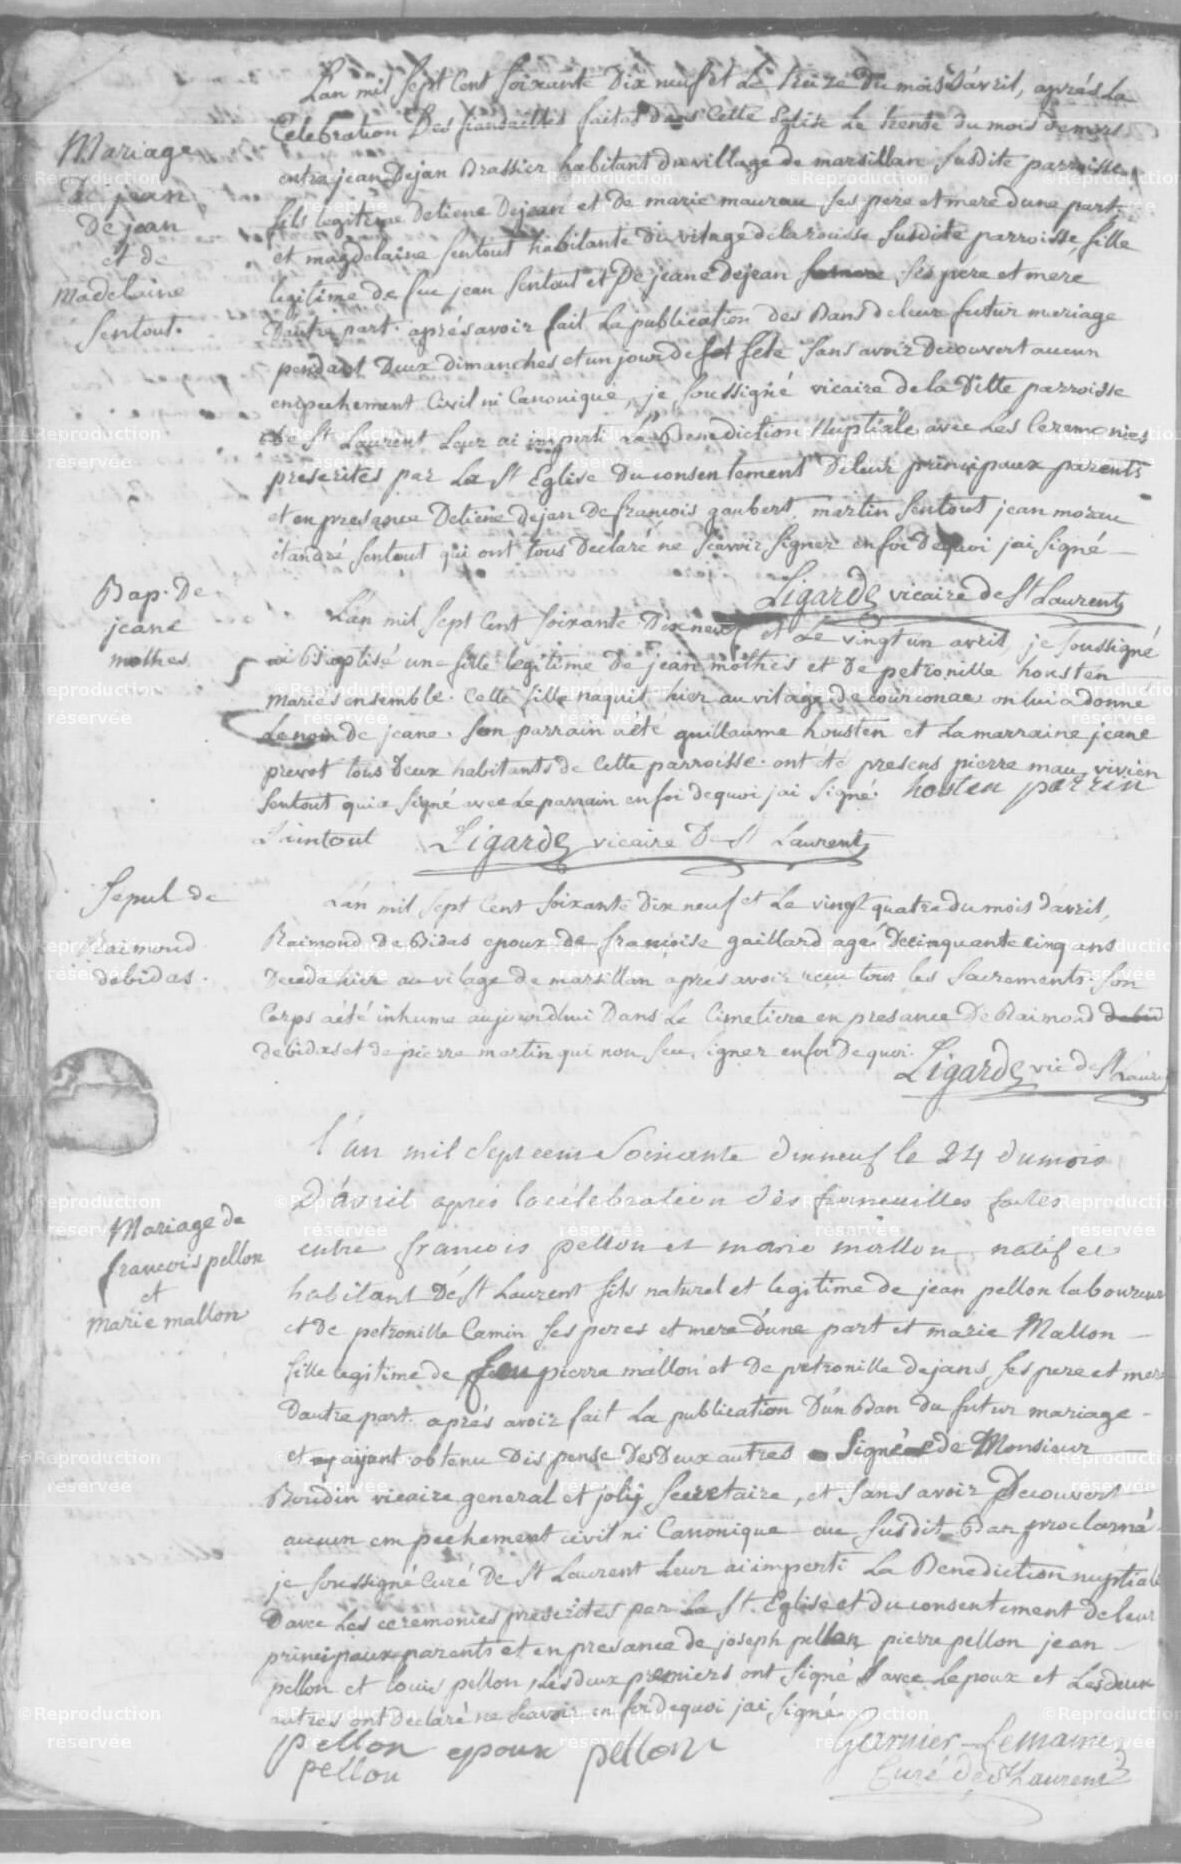 Mariage
De jean
Dejean
et de
Madelaine
Sentout.
L'an mil sept Cent soixante Dix neuf et Le treize Du mois d'avril, aprés La
Celebration Des fiansailles faites dans Cette Eglise Le trente du mois de mars
entre jean Dejan Brassier habitant du village de marsillan susdite parroisse
fils legitime detiene Dejean et De marie maureau ses pere et mere dune part.
et magdelaine sentout habitante Du vilage de la rousse susdite parroisse fille
legitime de feu jean sentout et De jeane dejean ses pere et mere
Dautre part. aprés avoir fait La publication des Bans de leur futur mariage
pendant Deux dimanches et un jour de fete sans avoir Decouvert aucun
empechement Civil ni Canonique, je soussigné vicaire de la Ditte parroisse
De St Laurent Leur ai imparti La Benediction Nuptiale avec Les Ceremonies
prescrites par La St Eglise Du consentement De leur principaux parents
et en presance Detiene dejan De francois gaubert martin sentout jean moreau
et andré sentout qui ont tous Declaré ne scavoir signer en foi De quoi jai signé
Ligarde vicaire de St Laurent
Bap. De
jeane
mothes
L'an mil sept Cent soixante Dix neuf et Le vingt un avril je soussigné
ai Baptisé une fille legitime De jean mothes et De petronille housten
mariés ensemble. Cette fille naquit hier au vilage de courconac on lui a donne
Le nom De jeane. son parrain a été guillaume housten et La marraine jeane
prevot tous Deux habitants de Cette parroisse. ont été presens pierre mau vivien
sentout qui a signé avec Le parrain en foi de quoi jai signé. housten perrin
Sintout Ligarde vicaire De St Laurent
Sepul de
Raimond
debidas.
L'an mil sept Cent soixante Dix neuf et Le vingt quatre du mois d'avril,
Raimond De Bidas epoux de françoise gaillard agé De cinquante cinq ans
Deceda hier au vilage de marsillan apres avoir recu tous les Sacrements. son
Corps a été inhumé aujourdhui Dans Le Cimetiere en presance De Raimond debid
debidas et de pierre martin qui non seu signer en foi De quoi.
Ligarde vic de St Laurent
Mariage de
francois pellon
et
marie mallon
l'an mil sept cent soixante dix neuf le 24 du mois
D'avril aprés la célebration dès fiancailles faites
entre francois pellon et marie mallon natif et
habitant De St Laurent fils naturel et legitime de jean pellon laboureur
et De petronille Camin ses peres et mere d'une part et marie Mallon
fille legitime de feu pierre mallon et De petronille dejans ses pere et mere
Dautre part. aprés avoir fait La publication D'un Ban Du futur mariage
et ayant obtenu Dispense Des Deux autres Signée de Monsieur
Boudin vicaire general et joly Secretaire, et sans avoir Decouvert
aucun empechement civil ni Canonique au susdit Ban proclamé
je soussigné Curé De St Laurent Leur ai imparti La Benediction nuptiale
Davec Les ceremonies prescrites par La St. Eglise et du consentement de leur
principaux parents et en presance de joseph pellon, pierre pellon jean
pellon et louis pellon, Les deux premiers ont signé avec Lepoux et Les deux
autres ont declaré ne scavoir en foi de quoi jai signé
pellon epoux pellon Garnier Lemaine
pellon Curé De St Laurent